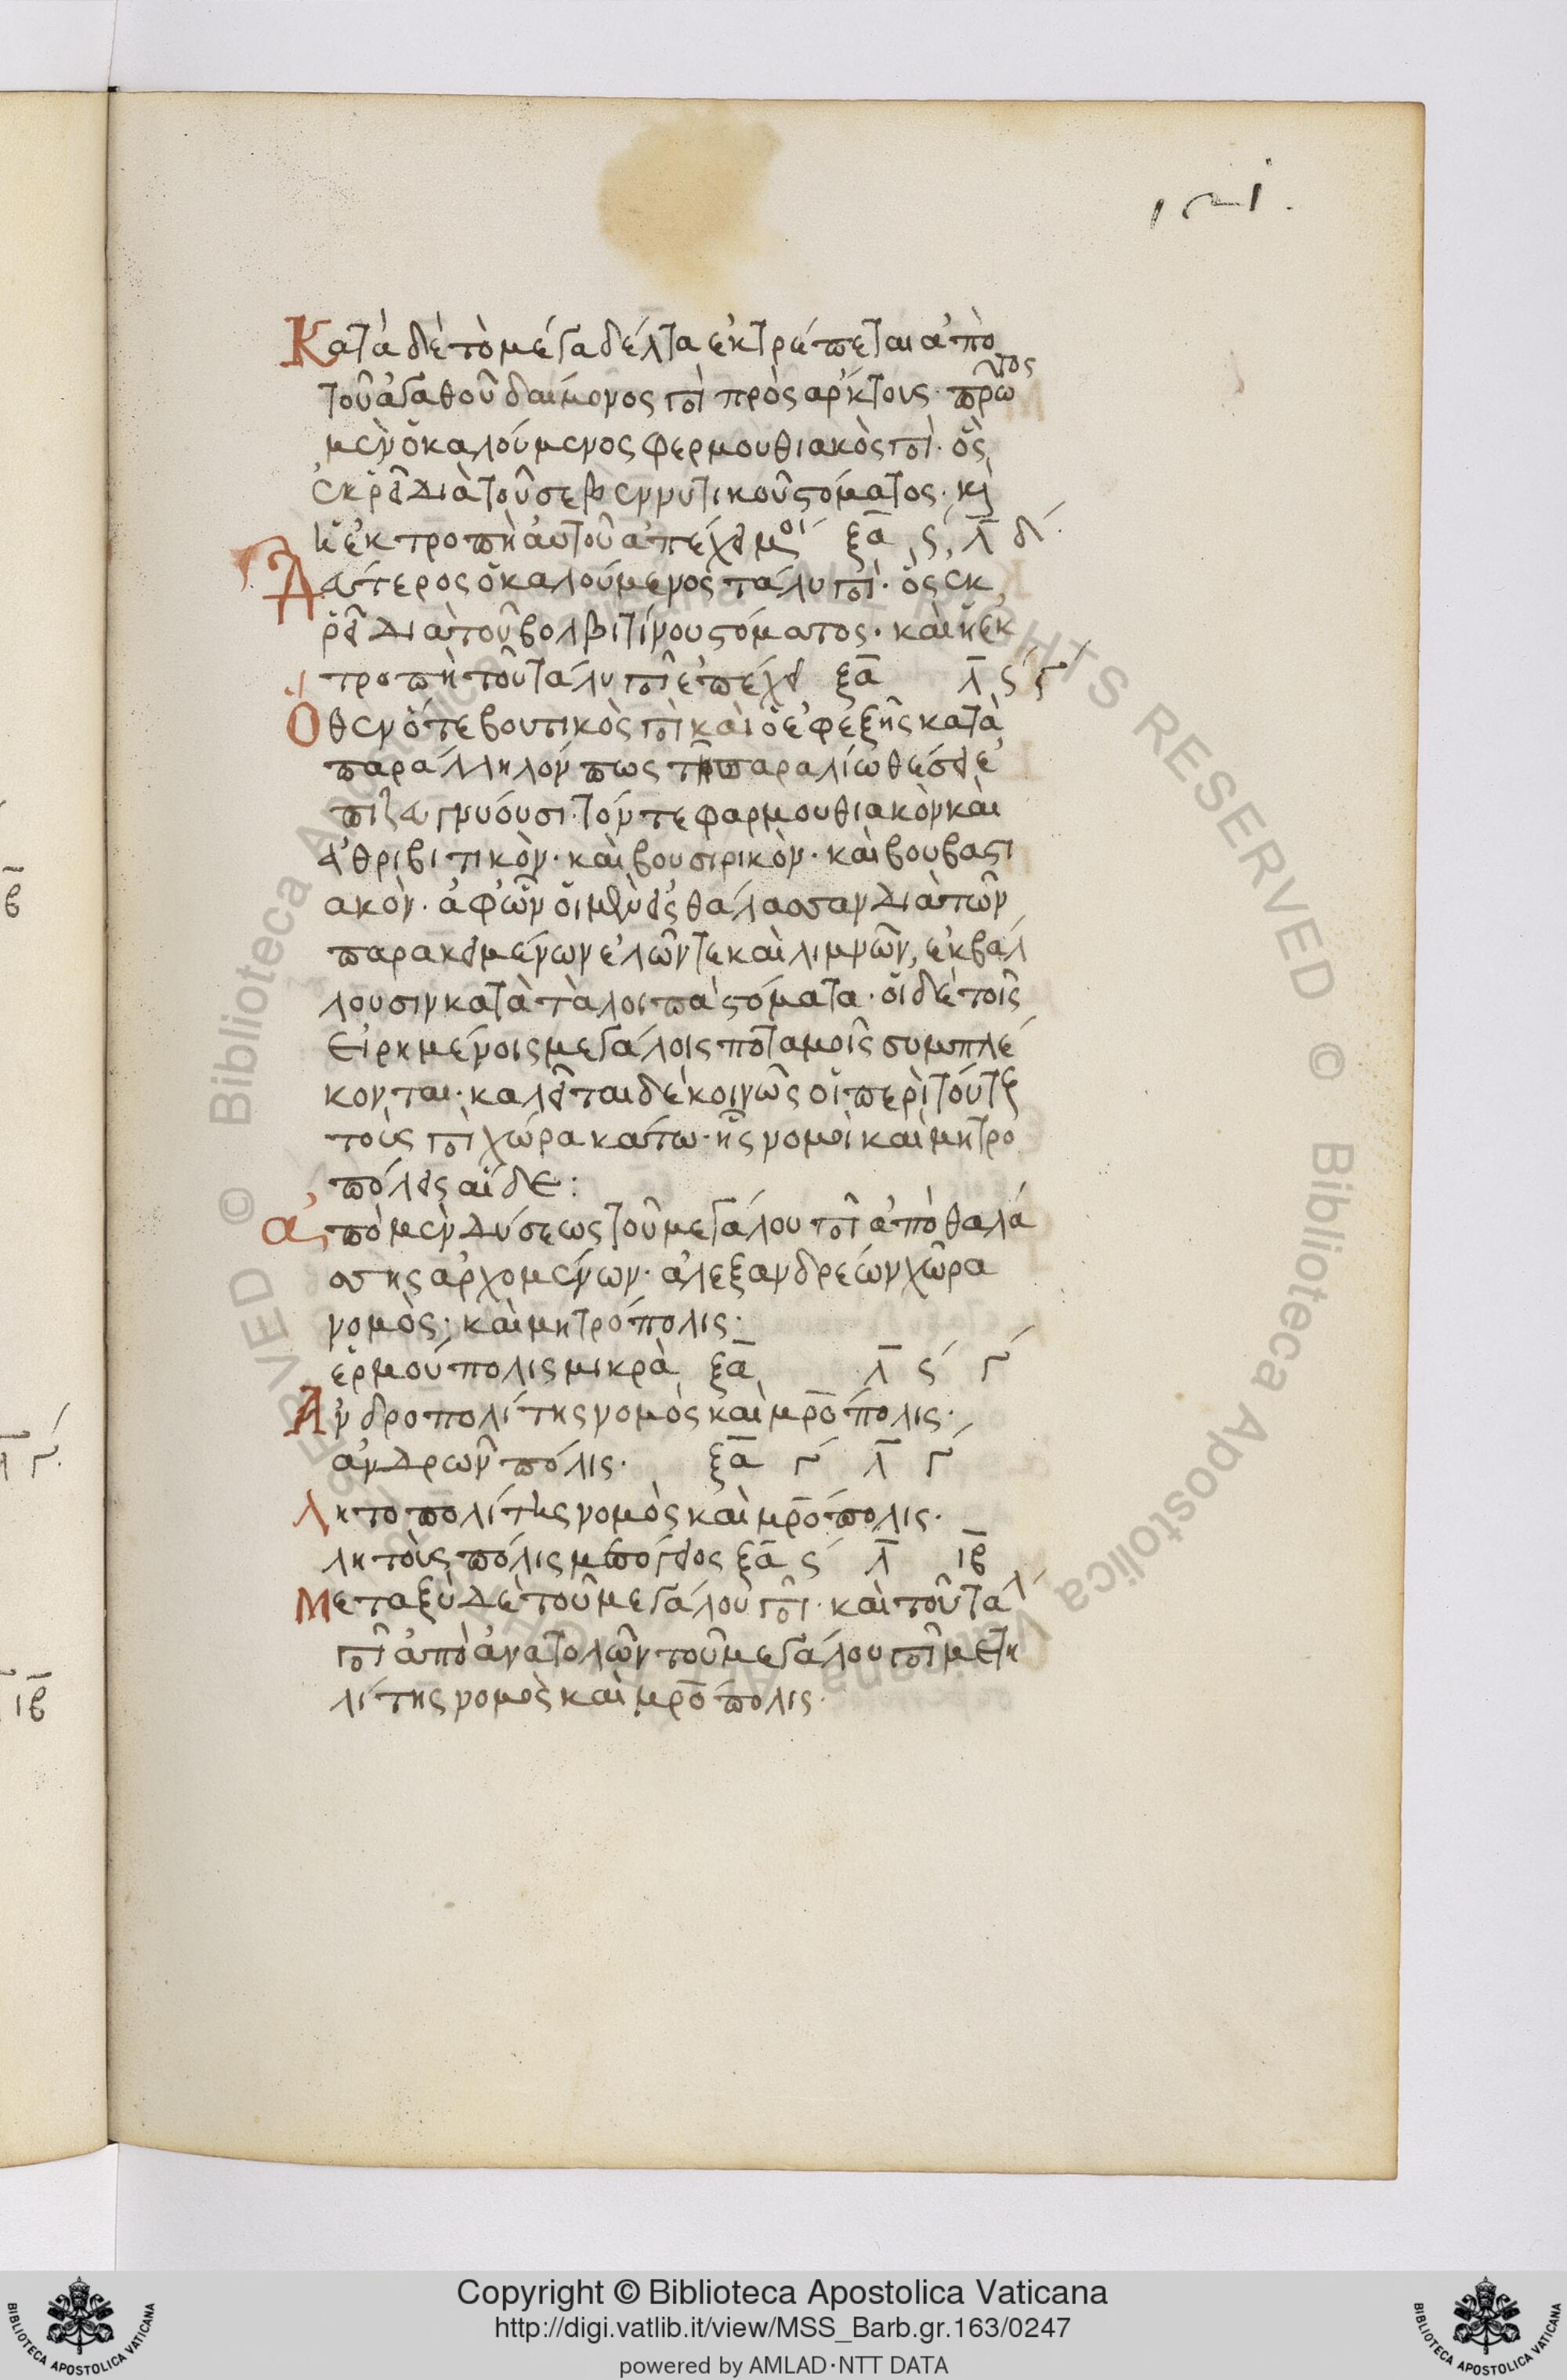 151.
Κατὰ δὲ τὸ μέγα δέλτα ἐκτρέπεται ἀπὸ
τοῦ ἀγαθοῦ δαίμονος ποτ πρὸς ἄρκτους· πρῶτος
μὲν ὁ καλούμενος φερμουθιακὸς ποτ· ὃς
ἐκρεῖ διὰ τοῦ σεβεννυτικοῦ στόματος· κὶ
ἡ ἐκτροπὴ αὐτοῦ ἀπέχει μοι ξα ς λ δ
Δεύτερος ὁ καλούμενος τάλυ ποτ· ὃς ἐκ
ρεῖ διὰ τοῦ βολβιτίνου στόματος· καὶ ἡ ἐκ
τροπὴ τοῦ τάλυ ποτ ἐπέχει ξα λ ς γ
Ὅθεν ὅ τε βουτικὸς ποτ καὶ ὁ ἐφεξῆς κατὰ
παράλληλόν πως παραλίω θέσει ἐ
πιζευγνύουσι· τόν τε φαρμουθιακὸν καὶ
ἀθριβιτικὸν· καὶ βουσιρικὸν· καὶ βουβαστι
ακόν· ἀφ' ὧν οἱ μὲν εἰς θάλασσαν διὰ τῶν
παρακειμένων ἑλῶν τε καὶ λιμνῶν, ἐκβάλ
λουσιν κατὰ τὰ λοιπὰ στόματα· οἱ δὲ τοῖς
εἰρημένοις μεγάλοις ποταμοῖς συμπλέ
κονται· καλεῖται δὲ κοινῶς οἱ περὶ τούτε
τοὺς ποτ χώρα κάτω· ἧς νομοὶ καὶ μητρο
πόλεις αἵδε:
ἀπὸ μὲν δύσεως τοῦ μεγάλου ποτ ἀπὸ θαλά
σσης ἀρχομένων· ἀλεξανδρέων χῶρα
νομὸς· καὶ μητρόπολις·
ἑρμούπολις μικρὰ ξα λ ς γ
Ἀνδροπολίτης νομὸς καὶ μροπολις·
ἀνδρῶν πόλις· ξα γ λ γ
Λητοπολίτης νομὸς καὶ μροπολις·
λητοῦς πόλις μεσόγειος ξα ς λ ιβ
Μεταξὺ δὲ τοῦ μεγάλου ποτ· καὶ τοῦ ταλ
ποτ ἀπὸ ἀνατολῶν τοῦ μεγάλου ποτ μετη
λίτης νομὸς καὶ μροπολις·
β
λ γ
ιβ
Copyright © Biblioteca Apostolica Vaticana
http://digi.vatlib.it/view/MSS_Barb.gr.163/0247
powered by AMLAD·NTT DATA